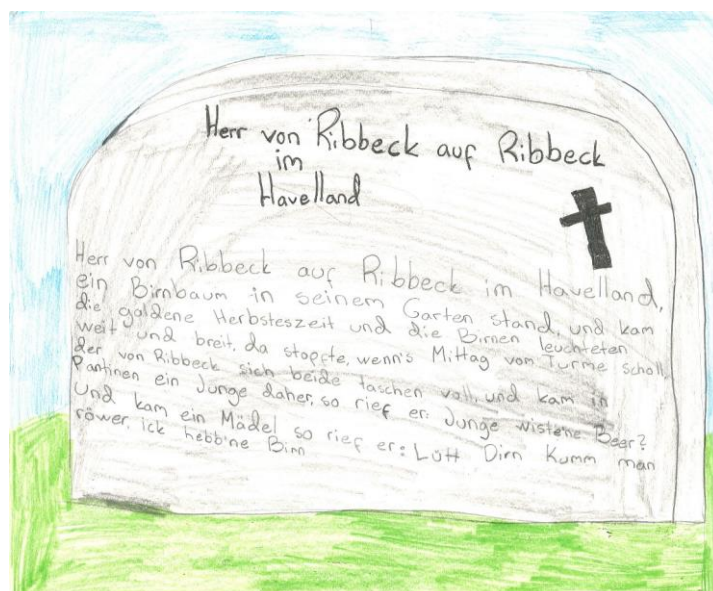 Herr von Ribbeck auf Ribbeck
im
Havelland
Herr von Ribbeck auf Ribbeck im Havelland,
ein Birnbaum in seinem Garten stand, und kam
die goldene Herbsteszeit und die Birnen leuchteten
weit und breit, da stopfte, wenn's Mittag vom Turme scholl,
der von Ribbeck sich beide taschen voll, und kam in
Pantinen ein Junge daher, so rief er: Junge wiste'ne Beer?
Und kam ein Mädel so rief er: Lütt Dirn Kumm man
röwer, ick hebb'ne Birn